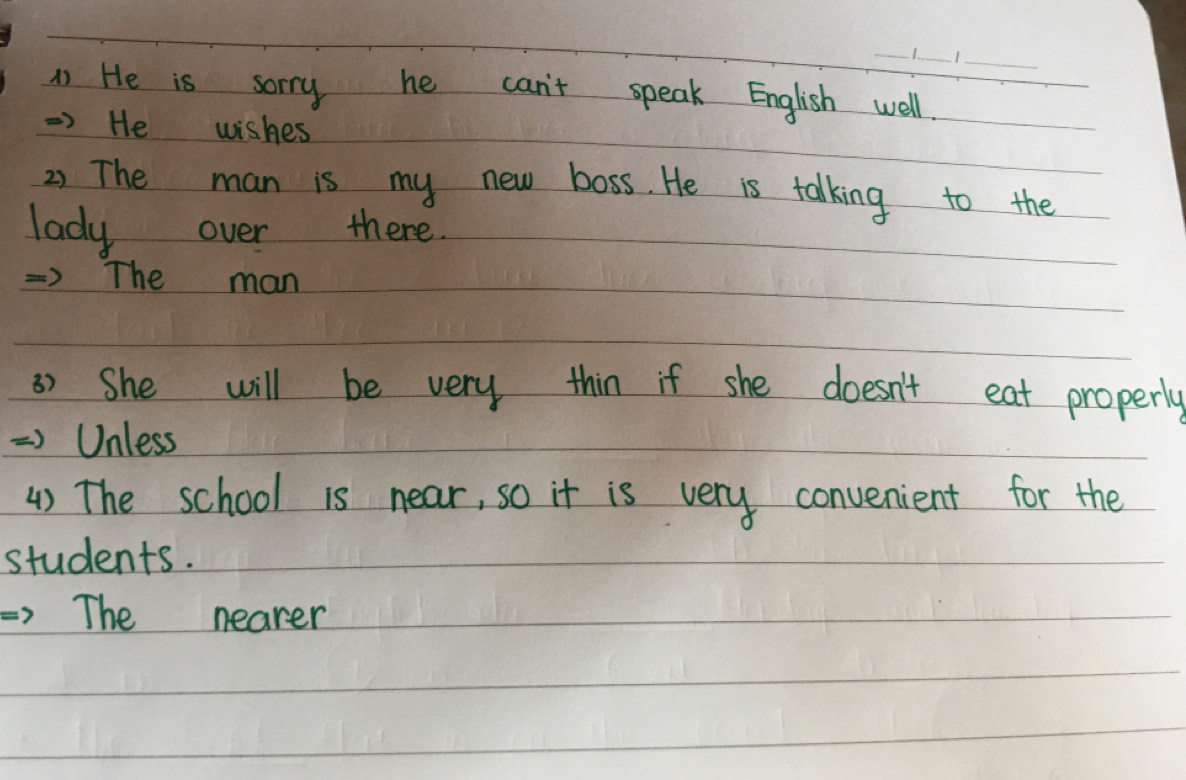 1) He is sorry he can't speak English well.
=> He wishes
2) The man is my new boss. He is talking to the
lady over there.
=> The man
3) She will be very thin if she doesn't eat properly
=> Unless
4) The school is near, so it is very convenient for the
students.
=> The nearer